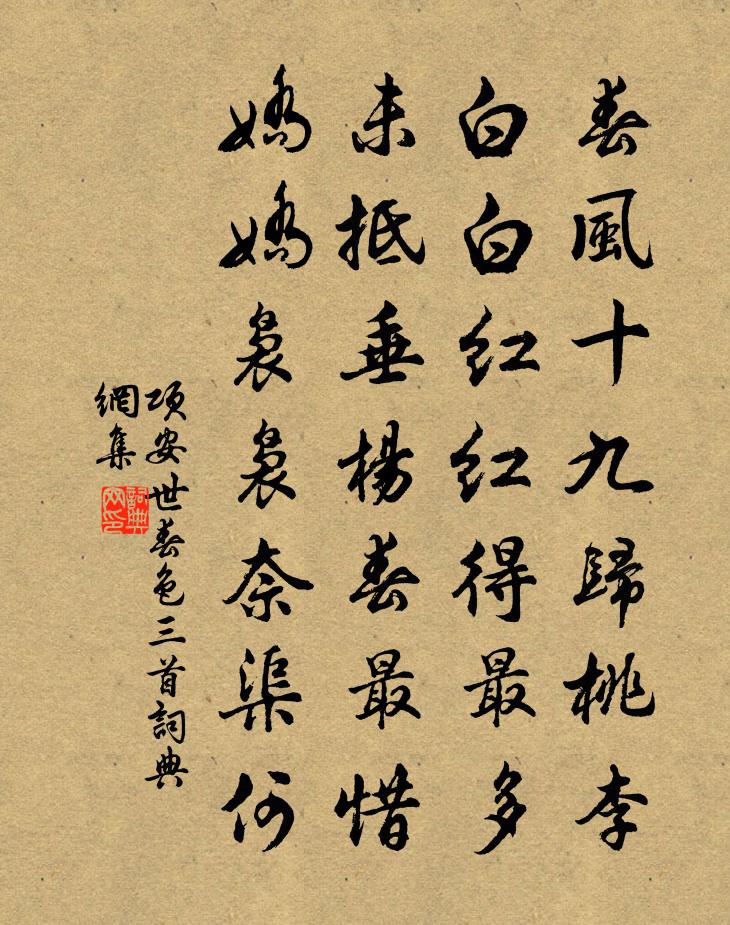 春風十九歸桃李
白白紅紅得最多
未抵垂楊春最惜
嬌嬌裊裊奈渠何
項安世春色三首詞典
網集
詞典
网印